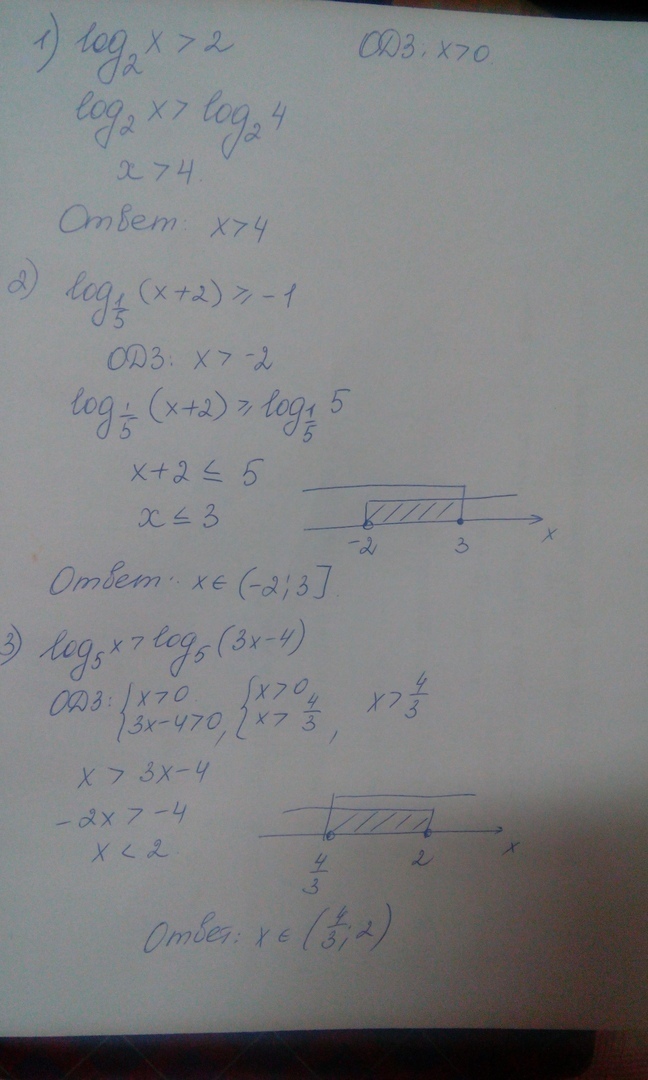 1) log₂ x > 2 ОДЗ: x>0
log₂ x > log₂ 4
x > 4.
Ответ: x>4
2) log_{1/5} (x+2) ⩾ -1
ОДЗ: x > -2
log_{1/5} (x+2) ⩾ log_{1/5} 5
x+2 ≤ 5
x ≤ 3
-2 3 x
Ответ: x ∈ (-2; 3].
3) log₅ x > log₅ (3x-4)
ОДЗ: { x>0 3x-4>0, { x>0 x> 4/3, x> 4/3
x > 3x-4
-2x > -4
x < 2
4/3 2 x
Ответ: x ∈ (4/3; 2)